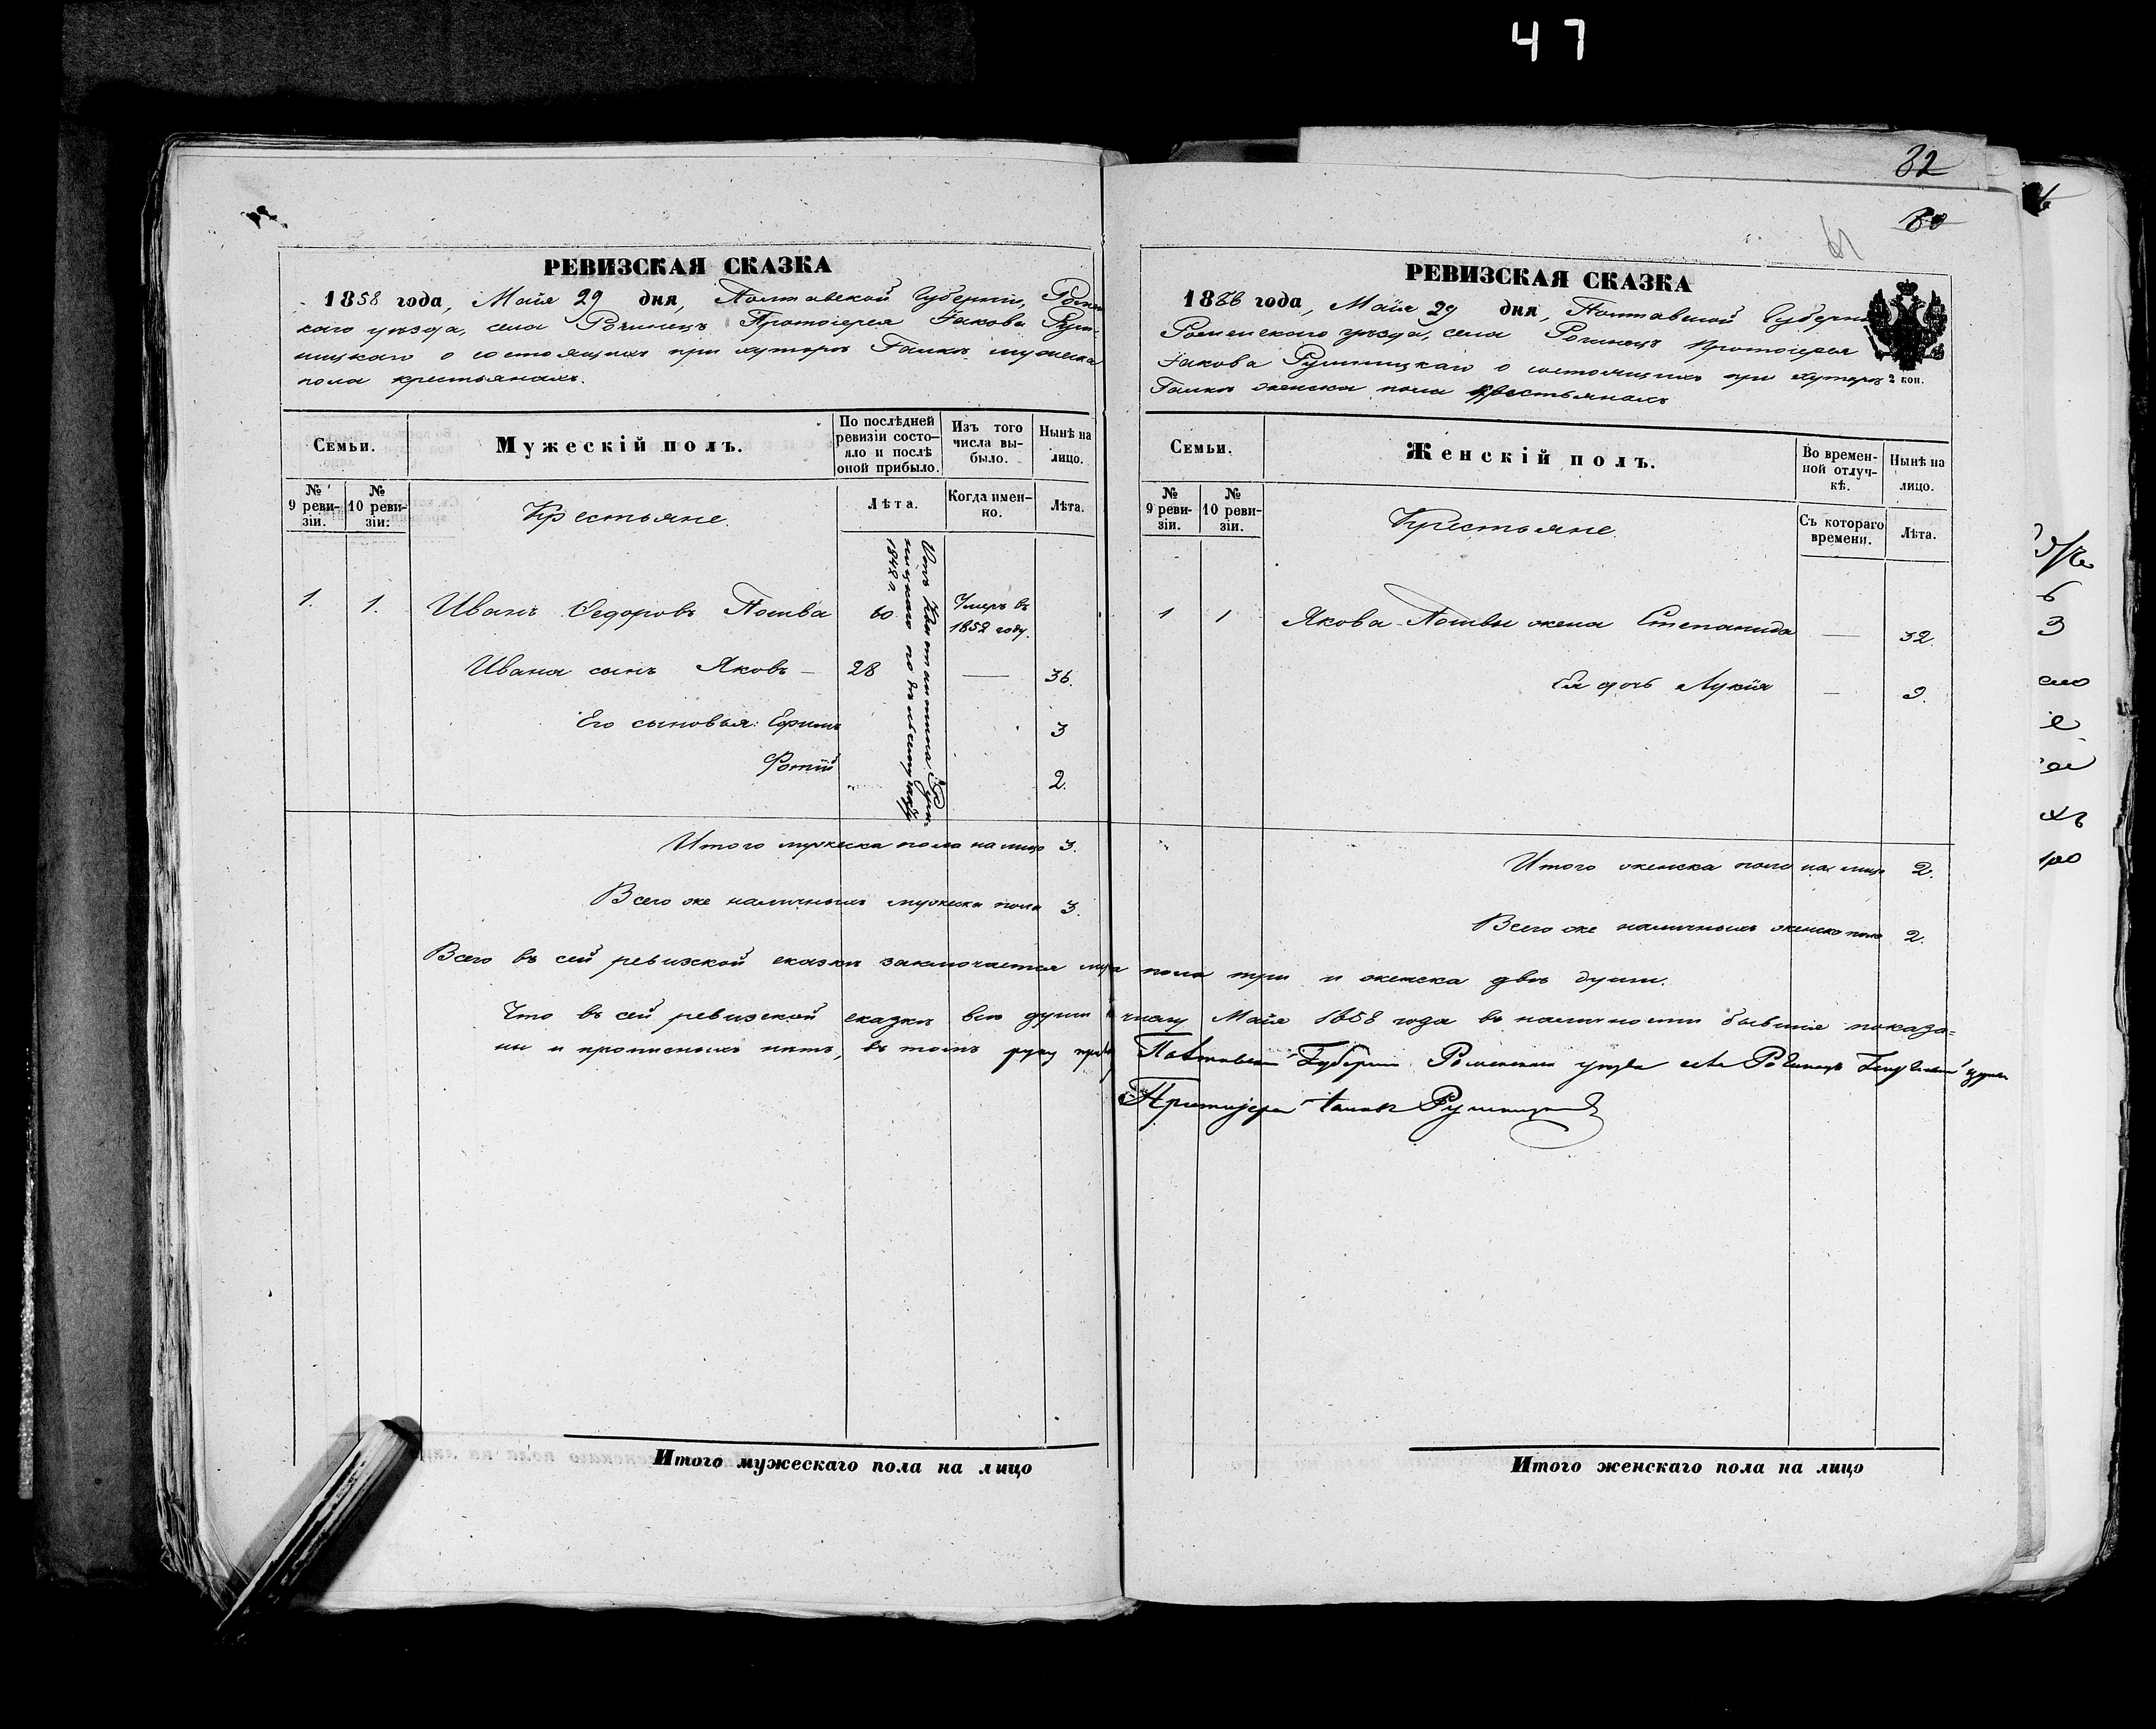 47
82
80
61
РЕВИЗСКАЯ СКАЗКА
1858 года, Майя 29 дня, Полтавской Губерніи, Ромен-
скаго уѣзда, села Рогинецъ Протоіерея Іакова Рум-
ницкаго о состоящихъ при хуторѣ Галкѣ мужеска
пола крестьянахъ.
Семьи.
Мужескій полъ.
По послѣдней ревизіи состо-яло и послѣ оной прибыло.
Изъ того числа вы-было.
Нынѣ на лицо.
№ 9 реви-зіи.
№ 10 реви-зіи.
Крестьяне.
Лѣта.
Когда имен-но.
Лѣта.
1. 1. Иванъ Федоровъ Пошва 60 Умеръ въ 1852 году.
Ивана сынъ Яковъ — 28 — 36.
Его сыновья: Ефимъ 3
Фотій 2.
1848 г.
Итого мужеска пола на лицо 3.
Всего же наличныхъ мужеска пола 3.
РЕВИЗСКАЯ СКАЗКА
1858 года, Майя 29 дня, Полтавской Губерніи
Роменскаго уѣзда, села Рогинецъ Протоіерея
Іакова Румницкаго о состоящихъ при хуторѣ
Галкѣ женска пола крестьянахъ
2 коп.
Семьи.
Женскій полъ.
Во времен-ной отлуч-кѣ.
Нынѣ на лицо.
№ 9 реви-зіи.
№ 10 реви-зіи.
Крестьяне.
Съ котораго времени.
Лѣта.
1 1 Якова Пошвы жена Степанида — 32.
Ея дочь Лукія — 9.
Итого женска пола на лицо 2.
Всего же наличныхъ женска пола 2.
Всего въ сей ревизской сказкѣ заключается муж. пола три и женска двѣ души.
Что въ сей ревизской сказкѣ всѣ души къ числу Майя 1858 года въ наличности бывшіе показа-
ны и прописныхъ нѣтъ, въ томъ руку Полтавской Губерніи Роменскаго уѣзда села Рогинецъ
Протоіерей Іаковъ Румницкій
Итого мужескаго пола на лицо
Итого женскаго пола на лицо